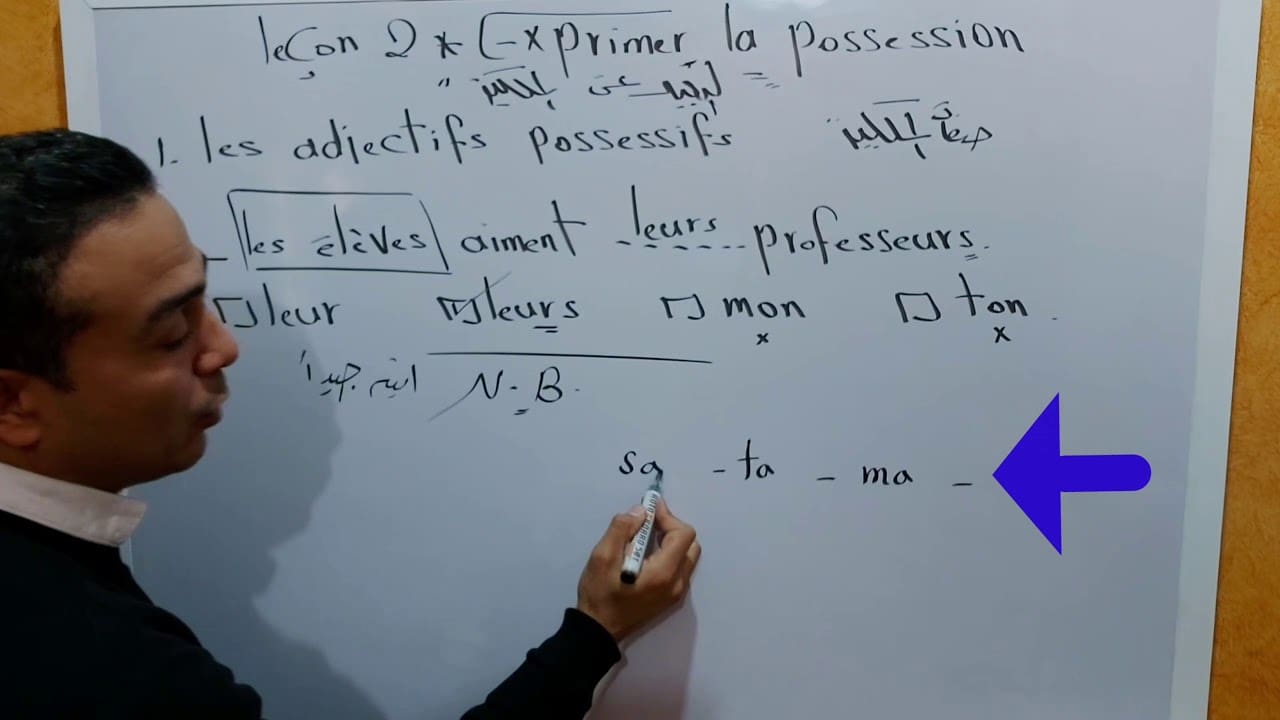 leçon 2 * Exprimer la possession
" لتعبير عن الملكية =
1. les adjectifs possessifs صفات الملكية
- les élèves aiment leurs professeurs.
leur leurs mon ton
x x
N.B. انتبه جيداً
sa - ta - ma -